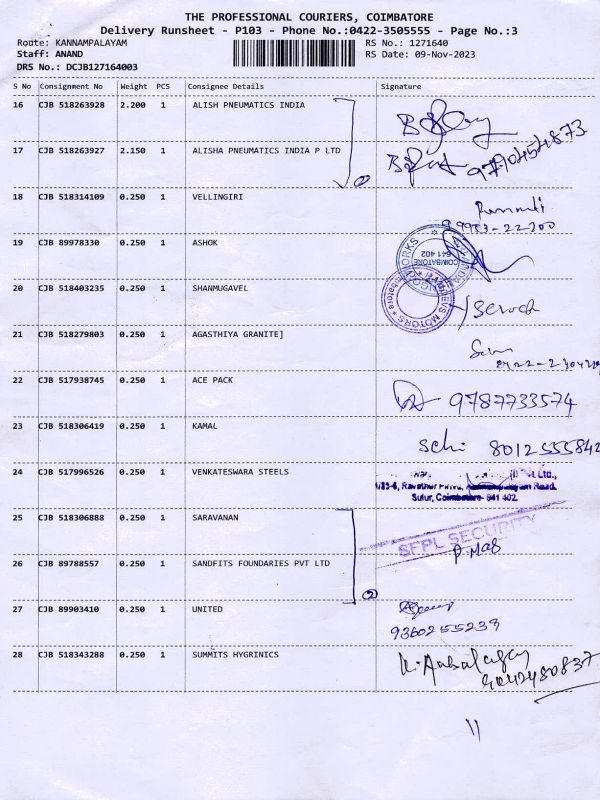 THE PROFESSIONAL COURIERS, COIMBATORE
Delivery Runsheet - P103 - Phone No.:0422-3505555 - Page No.:3
Route: KANNAMPALAYAM RS No.: 1271640
Staff: ANAND RS Date: 09-Nov-2023
DRS No.: DCJB127164003
S No Consignment No Weight PCS Consignee Details Signature
16 CJB 518263928 2.200 1 ALISH PNEUMATICS INDIA
17 CJB 518263927 2.150 1 ALISHA PNEUMATICS INDIA P LTD
18 CJB 518314109 0.250 1 VELLINGIRI
19 CJB 89978330 0.250 1 ASHOK
COIMBATORE
641 402
20 CJB 518403235 0.250 1 SHANMUGAVEL
MOTORS
21 CJB 518279803 0.250 1 AGASTHIYA GRANITE]
22 CJB 517938745 0.250 1 ACE PACK 9787733574
23 CJB 518306419 0.250 1 KAMAL 8012555842
24 CJB 517996526 0.250 1 VENKATESWARA STEELS
Ltd.,
Road.
Sulur, Coimbatore- 641 402.
25 CJB 518306888 0.250 1 SARAVANAN
SFPL SECURITY
26 CJB 89788557 0.250 1 SANDFITS FOUNDARIES PVT LTD
2
27 CJB 89903410 0.250 1 UNITED
9360255239
28 CJB 518343288 0.250 1 SUMMITS HYGRINICS